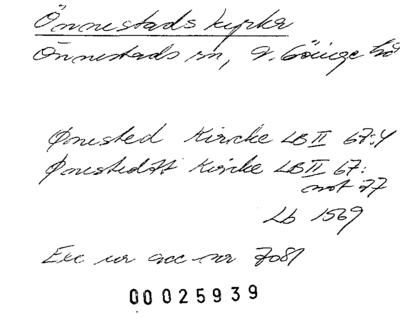 Önnestads kyrka
Önnestads sn, V. Göinge hd
Ønested Kircke LB II 67:4
Ønestedtt Kircke LB II 67:
not 27
Lb 1569
Exc ur acc nr 7081
00025939